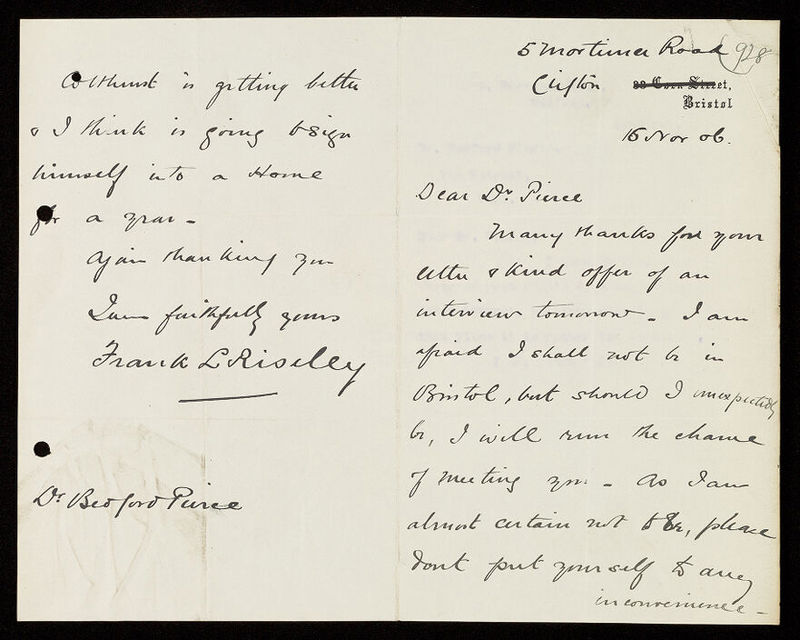 928
5 Mortimer Road
Clifton
Street,
Bristol
15 Nov 06.
Dear Dr Pierce
Many thanks for your
letter & kind offer of an
interview tomorrow. I am
afraid I shall not be in
Bristol, but should I unexpectedly
be, I will run the chance
of meeting you - As I am
almost certain not to be, please
dont put yourself to any
inconvenience -
Colthurst is getting better
& I think is going to sign
himself into a Home
for a year -
Again thanking you
I am faithfully yours
Frank L Riselley
Dr Bedford Pierce